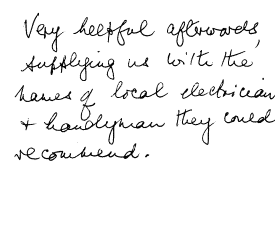 Very helpful afterwards,
supplying us with the
names of local electrician
+ handyman they could
recommend.